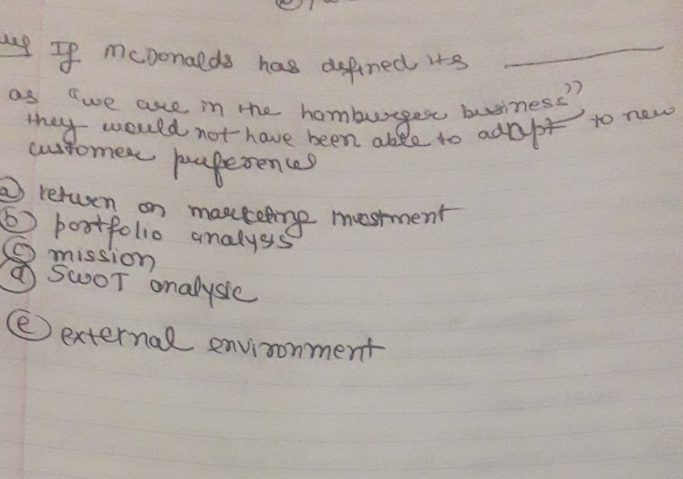 If McDonalds has defined its ________
as "we are in the hamburger business"
they would not have been able to adapt to new
customer preferences
a) return on marketing investment
b) portfolio analysis
c) mission
d) SWOT analysis
e) external environment